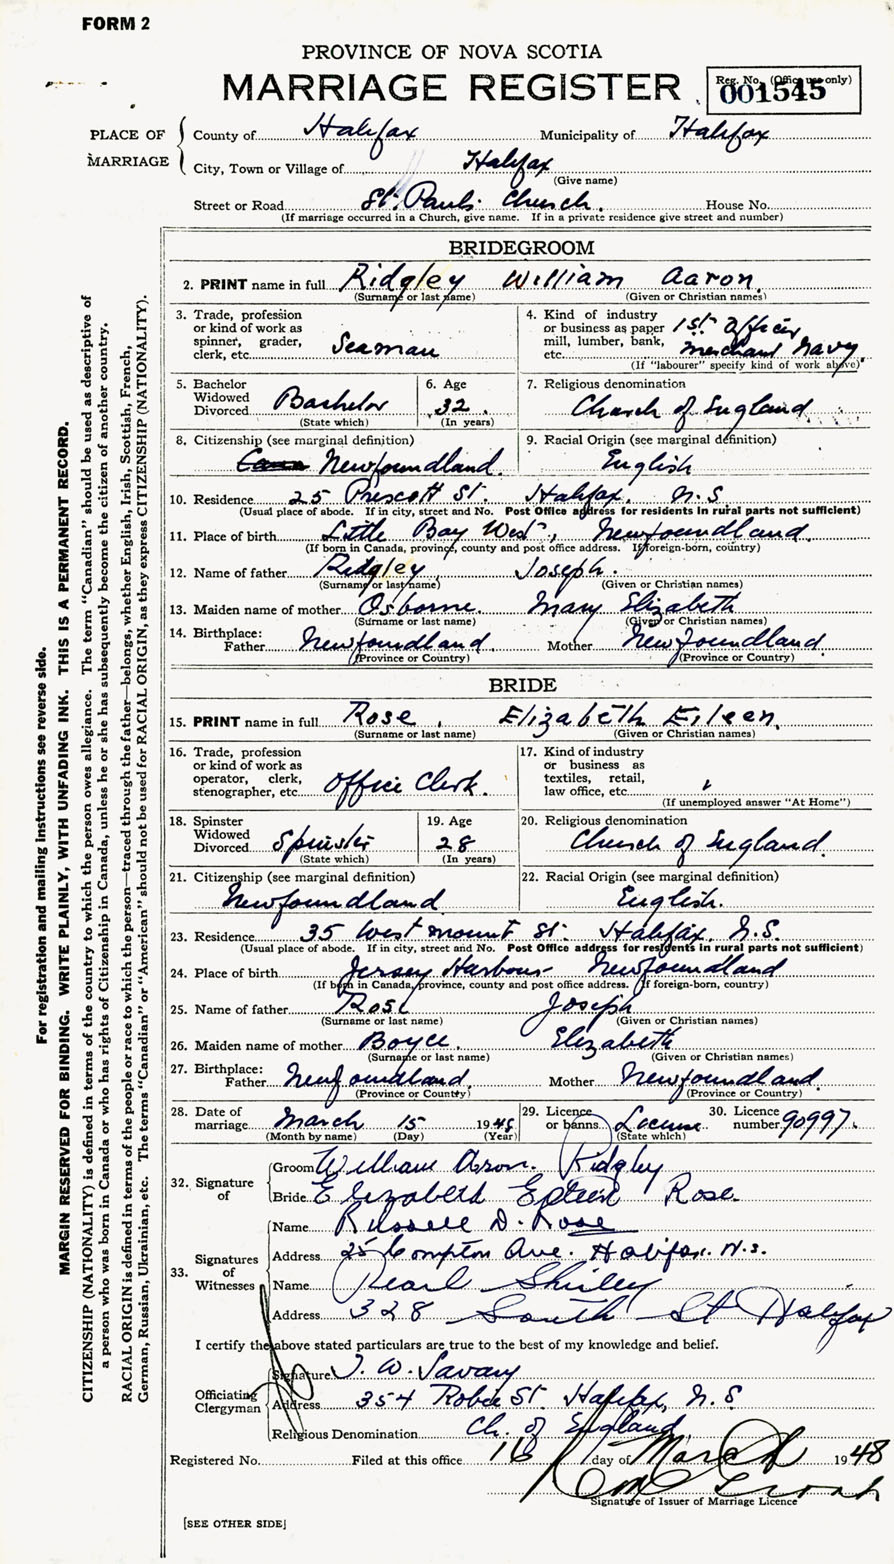 FORM 2
PROVINCE OF NOVA SCOTIA
MARRIAGE REGISTER
Reg. No. (Office use only)
001545
PLACE OF MARRIAGE
County of Halifax Municipality of Halifax
City, Town or Village of Halifax
(Give name)
Street or Road St. Pauls Church. House No.
(If marriage occurred in a Church, give name. If in a private residence give street and number)
BRIDEGROOM
2. PRINT name in full Ridgley William Aaron.
(Surname or last name) (Given or Christian names)
3. Trade, profession or kind of work as spinner, grader, clerk, etc. Seaman
4. Kind of industry or business as paper mill, lumber, bank, etc. 1st Officer Merchant Navy
(If "labourer" specify kind of work above)
5. Bachelor Widowed Divorced Bachelor
(State which)
6. Age 32
(In years)
7. Religious denomination
Church of England
8. Citizenship (see marginal definition)
Newfoundland.
9. Racial Origin (see marginal definition)
English
10. Residence 25 Prescott St. Halifax, N.S
(Usual place of abode. If in city, street and No. Post Office address for residents in rural parts not sufficient)
11. Place of birth Little Bay West, Newfoundland.
(If born in Canada, province, county and post office address. If foreign-born, country)
12. Name of father Ridgley, Joseph.
(Surname or last name) (Given or Christian names)
13. Maiden name of mother Osborne. Mary Elizabeth
(Surname or last name) (Given or Christian names)
14. Birthplace: Father Newfoundland. Mother Newfoundland.
(Province or Country) (Province or Country)
BRIDE
15. PRINT name in full Rose, Elizabeth Eileen.
(Surname or last name) (Given or Christian names)
16. Trade, profession or kind of work as operator, clerk, stenographer, etc. Office Clerk.
17. Kind of industry or business as textiles, retail, law office, etc.
(If unemployed answer "At Home")
18. Spinster Widowed Divorced Spinster
(State which)
19. Age 28
(In years)
20. Religious denomination
Church of England.
21. Citizenship (see marginal definition)
Newfoundland
22. Racial Origin (see marginal definition)
English.
23. Residence 35 Westmount St. Halifax, N.S.
(Usual place of abode. If in city, street and No. Post Office address for residents in rural parts not sufficient)
24. Place of birth Jersey Harbour Newfoundland
(If born in Canada, province, county and post office address. If foreign-born, country)
25. Name of father Rose Joseph
(Surname or last name) (Given or Christian names)
26. Maiden name of mother Boyce. Elizabeth
(Surname or last name) (Given or Christian names)
27. Birthplace: Father Newfoundland. Mother Newfoundland.
(Province or Country) (Province or Country)
28. Date of marriage March 15 1948
(Month by name) (Day) (Year)
29. Licence or banns License
(State which)
30. Licence number 90997.
32. Signature of
Groom William Aron. Ridgley
Bride Elizabeth Eileen Rose.
33. Signatures of Witnesses
Name Russell D. Rose
Address 25 Compton Ave. Halifax. N.S.
Name Pearl Shirley
Address 328 South St Halifax
I certify the above stated particulars are true to the best of my knowledge and belief.
Officiating Clergyman
Signature T. W. Savary
Address 354 Robie St. Halifax, N.S
Religious Denomination Ch. of England
Registered No. Filed at this office 16 day of March 1948
Signature of Issuer of Marriage Licence
[SEE OTHER SIDE]
For registration and mailing instructions see reverse side.
MARGIN RESERVED FOR BINDING. WRITE PLAINLY, WITH UNFADING INK. THIS IS A PERMANENT RECORD.
CITIZENSHIP (NATIONALITY) is defined in terms of the country to which the person owes allegiance. The term "Canadian" should be used as descriptive of
a person who was born in Canada or who has rights of Citizenship in Canada, unless he or she has subsequently become the citizen of another country.
RACIAL ORIGIN is defined in terms of the people or race to which the person—traced through the father—belongs, whether English, Irish, Scottish, French,
German, Russian, Ukrainian, etc. The terms "Canadian" or "American" should not be used for RACIAL ORIGIN, as they express CITIZENSHIP (NATIONALITY).